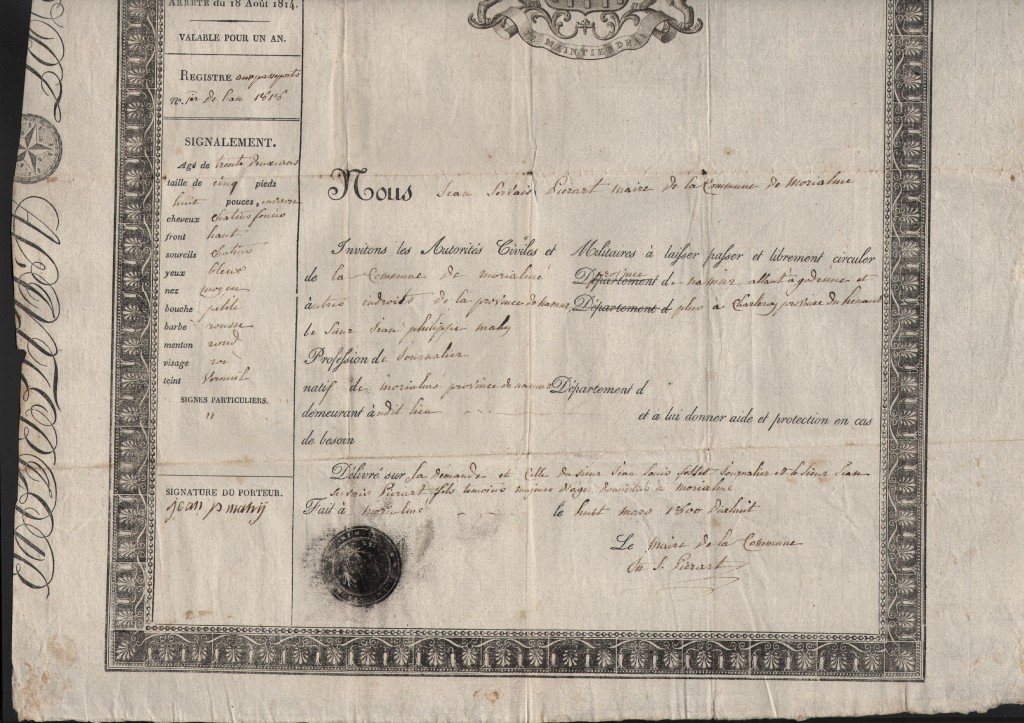 ARRÊTÉ du 18 Août 1814.
VALABLE POUR UN AN.
REGISTRE aux passeports
no. 1er de l'an 1818
SIGNALEMENT.
Agé de trente deux ans
taille de cinq pieds
huit pouces, environ
cheveux chatins foncés
front haut
sourcils chatins
yeux bleux
nez moyen
bouche petite
barbe rousse
menton rond
visage
teint Vermeil
SIGNES PARTICULIERS.
"
SIGNATURE DU PORTEUR.
jean p mahÿ
JE MAINTIENDRAI
Nous Jean Servais Pierart maire de la Commune de morialmé
Invitons les Autorités Civiles et Militaires à laisser passer et librement circuler
de la Commune de morialmé Département province de namur allant à et
à autres endroits de la province de namur, Département d plus a Charleroy province du hainaut
le Sieur Jean philippe mahy
Profession de Journalier
natif de morialmé province de namur Département d
demeurant à udit lieu et à lui donner aide et protection en cas
de besoin
Délivré sur la demande et celle du sieur Jean Louis Journalier et le Sieur Jean
Servais Pierart fils temoins majeurs d'age domiciliés à morialmé
Fait à morialmé le huit mars 1800 dixhuit
Le maire de la Commune
Jn S. Pierart